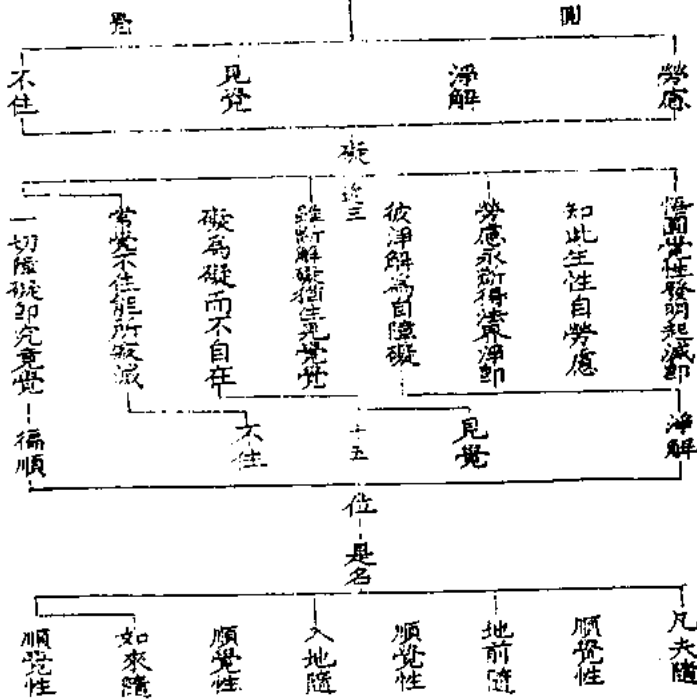 圓
覺
勞慮
淨解
見覺
不住
礙
近三
悟圓覺性發明起滅卽
知此生性自勞慮
勞慮永斷得法界淨卽
彼淨解為自障礙
雖斷解礙猶住見覺覺
礙為礙而不自在
常覺不住能所寂滅
一切障礙卽究竟覺
淨解
見覺
十五
不住
徧順
位
是名
凡夫隨
順覺性
地前隨
順覺性
入地隨
順覺性
如來隨
順覺性